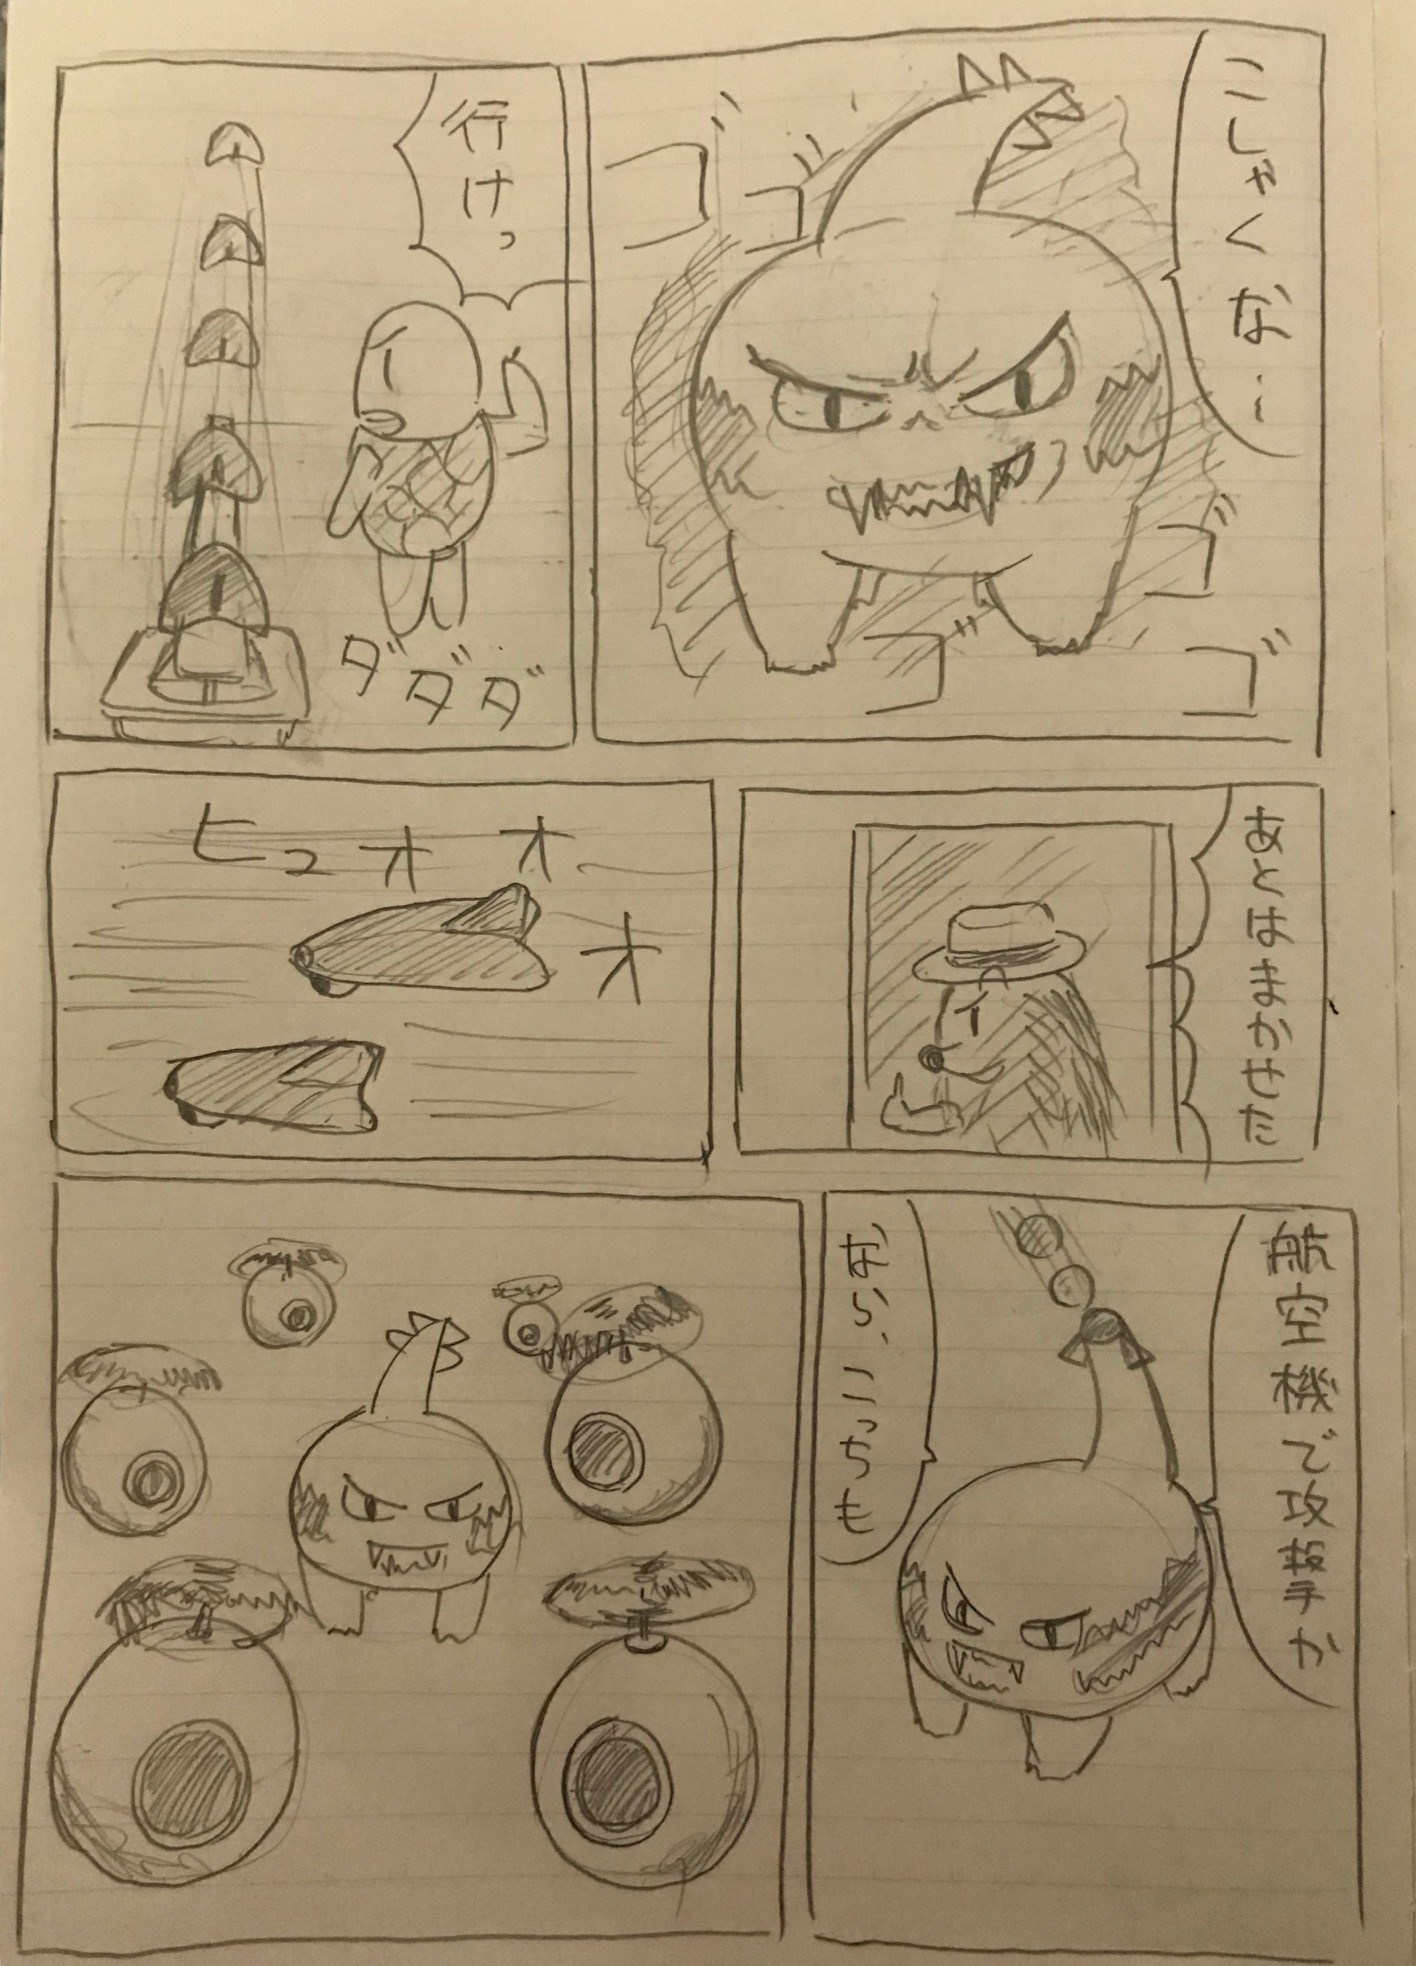 こしゃくな…
ゴゴゴゴゴ
行けっ
ダダダ
あとはまかせた
ヒュオオオ
航空機で攻撃か
なら、こっちも